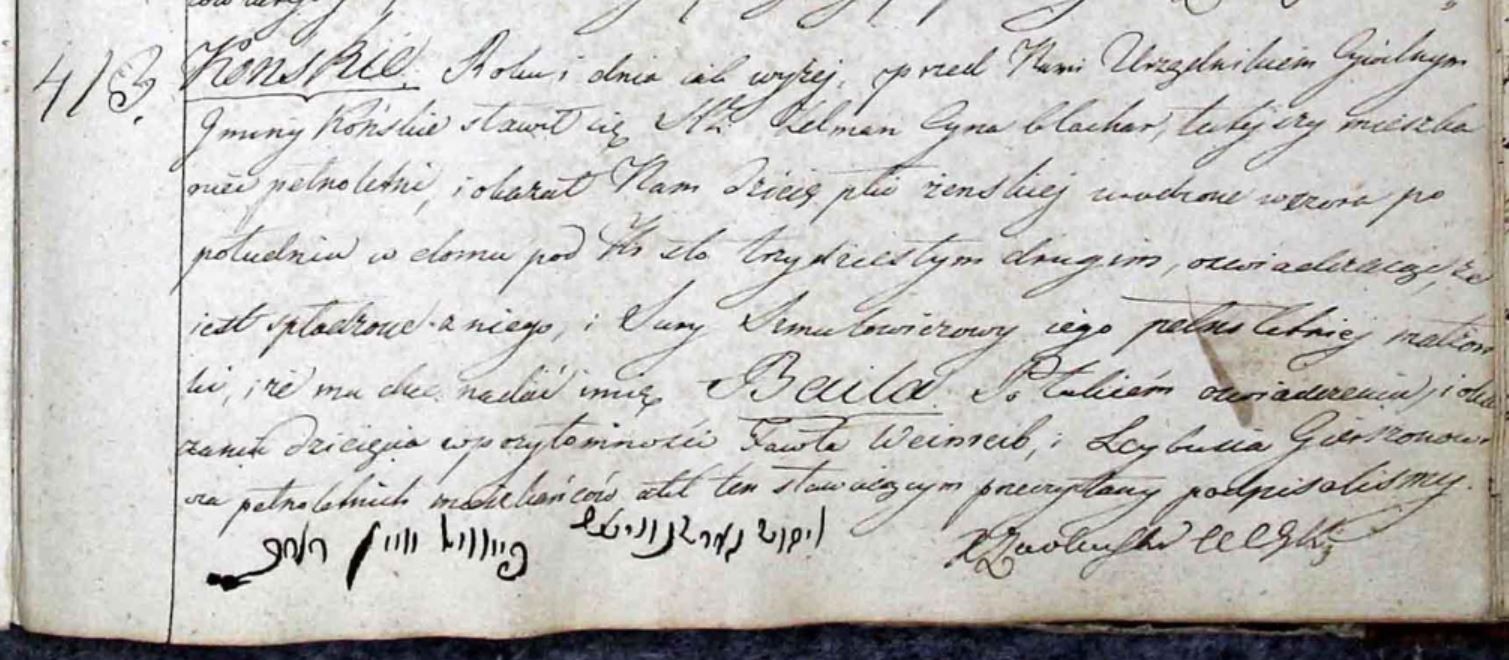 413. Końskie. Roku i dnia iak wyżej, przed Nami Urzędnikiem Cywilnym
Gminy Końskie stawił się St.Z. Zelman Cyna blachar, tutejszy mieszka
niec pełnoletni, i okazał Nam dziecię płci żenskiej urodzone wczora po
południu w domu pod Nr sto trzydziestym drugim, oswiadczaiąc, że
iest spłodzone z niego, i Sury Szmulowiczowy iego pełnoletniej małżon
ki, i że mu chce nadać imię Baila. Po takiém oswiadczeniu, i oka
zaniu dziecięcia w przytomności Fawla Weinreib, i Leybusia Gierszonowi
cza pełnoletnich mieszkańców akt ten stawaiącym przeczytany podpisalismy.
פייוויל וויין ליבוש גערשנוויטש